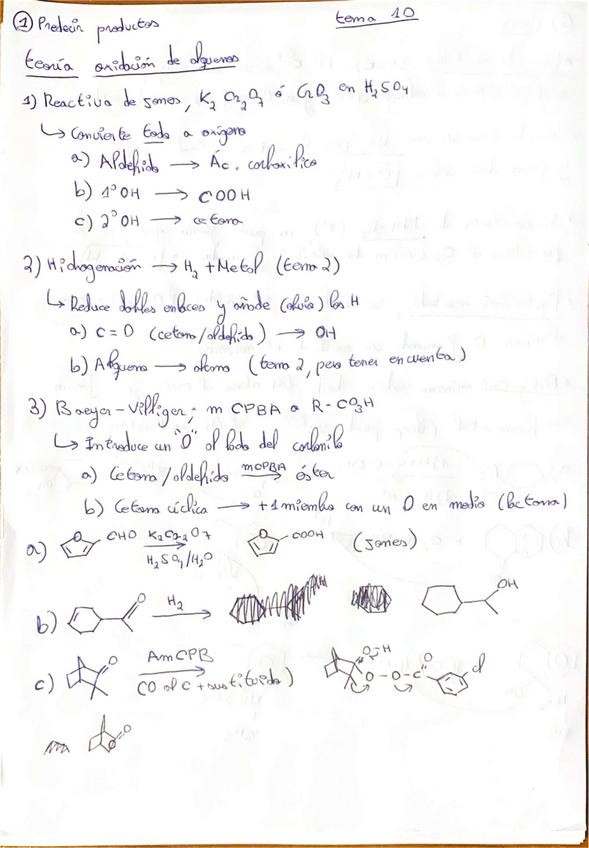 ① Predecir productos tema 10
teoría oxidación de alquenos
1) Reactivo de Jones, K₂Cr₂O₇ ó CrO₃ en H₂SO₄
↳ Convierte todo a oxígeno
a) Aldehído → Ác. carboxílico
b) 1° OH → COOH
c) 2° OH → cetona
2) Hidrogenación → H₂ + Metal (tema 2)
↳ Reduce dobles enlaces y añade los H
a) C=O (cetona/aldehído) → OH
b) Alqueno → alcano (tema 2, pero tener en cuenta)
3) Baeyer-Villiger; mCPBA o R-CO₃H
↳ Introduce un "O" al lado del carbonilo
a) Cetona/aldehído mCPBA → éster
b) Cetona cíclica → +1 miembro con un O en medio (lactona)
a) O CHO K₂Cr₂O₇ H₂SO₄/H₂O → O COOH (Jones)
b) O H₂ → OH
c) O AmCPB → CO al C + sustituido) O-H O-O-C O Cl
O O